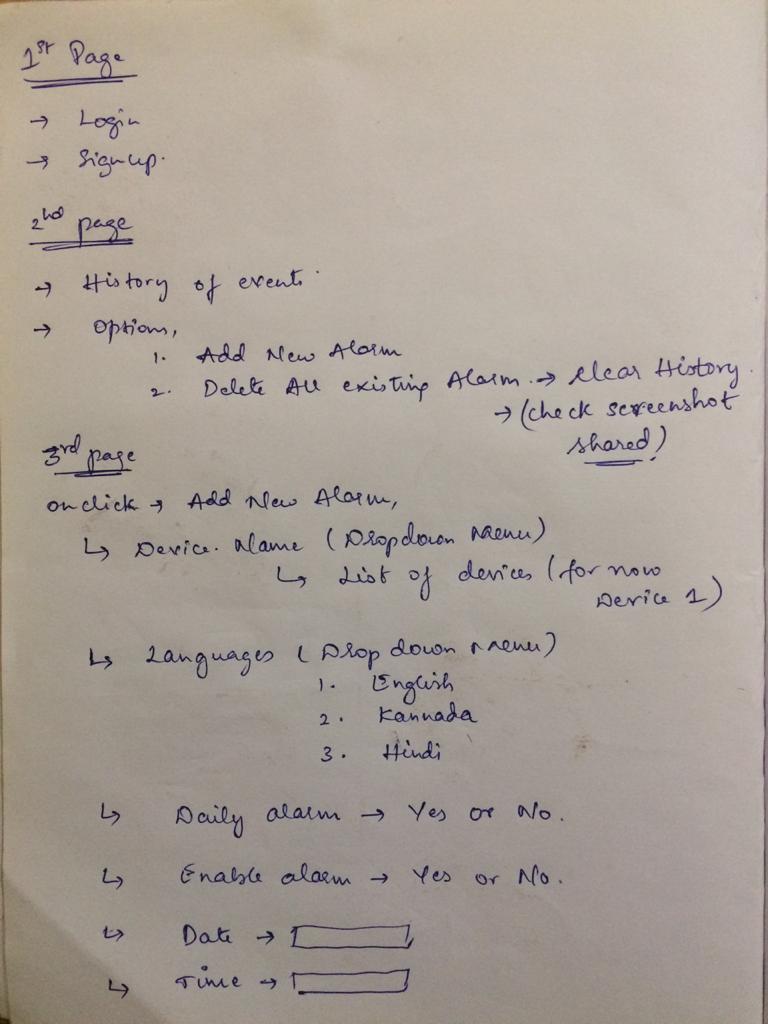 1st Page
→ Login
→ Sign up.
2nd page
→ History of events
→ Options,
1. Add New Alarm
2. Delete All existing Alarm. → clear History.
→ (check screenshot
shared!)
3rd page
on click → Add New Alarm,
↳ Device. Name (Dropdown Menu)
↳ List of devices (for now
Device 1)
↳ Languages (Drop down Menu)
1. English
2. Kannada
3. Hindi
↳ Daily alarm → Yes or No.
↳ Enable alarm → Yes or No.
↳ Date →
↳ Time →